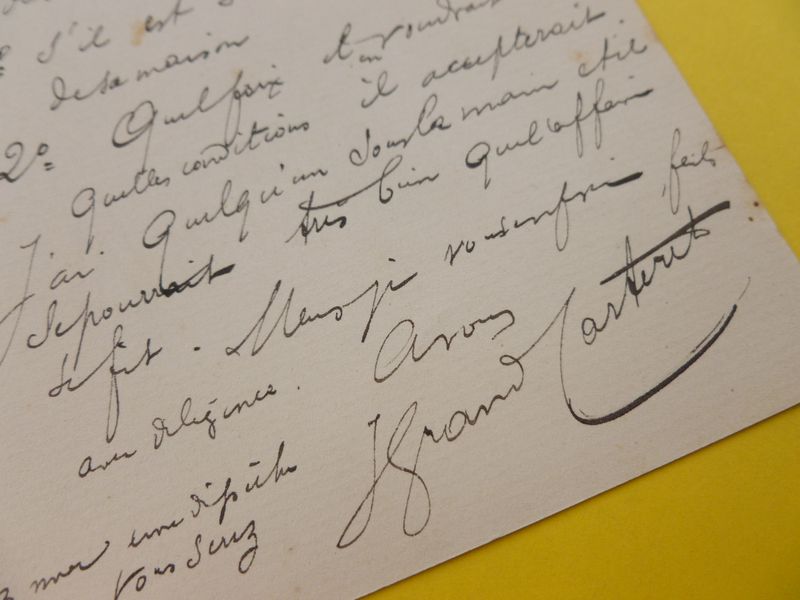 S'il est
de sa maison
2° Quel prix il en voudrait
quelles conditions il accepterait.
J'ai quelqu'un sous la main et il
se pourrait très bien que l'affaire
se fît. Mais je vous en prie, faites
avec diligence. À vous
J Grand Carteret
une dépêche
vous serez